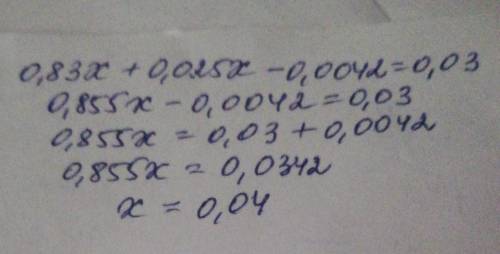 0,83x + 0,025x - 0,0042 = 0,03
0,855x - 0,0042 = 0,03
0,855x = 0,03 + 0,0042
0,855x = 0,0342
x = 0,04